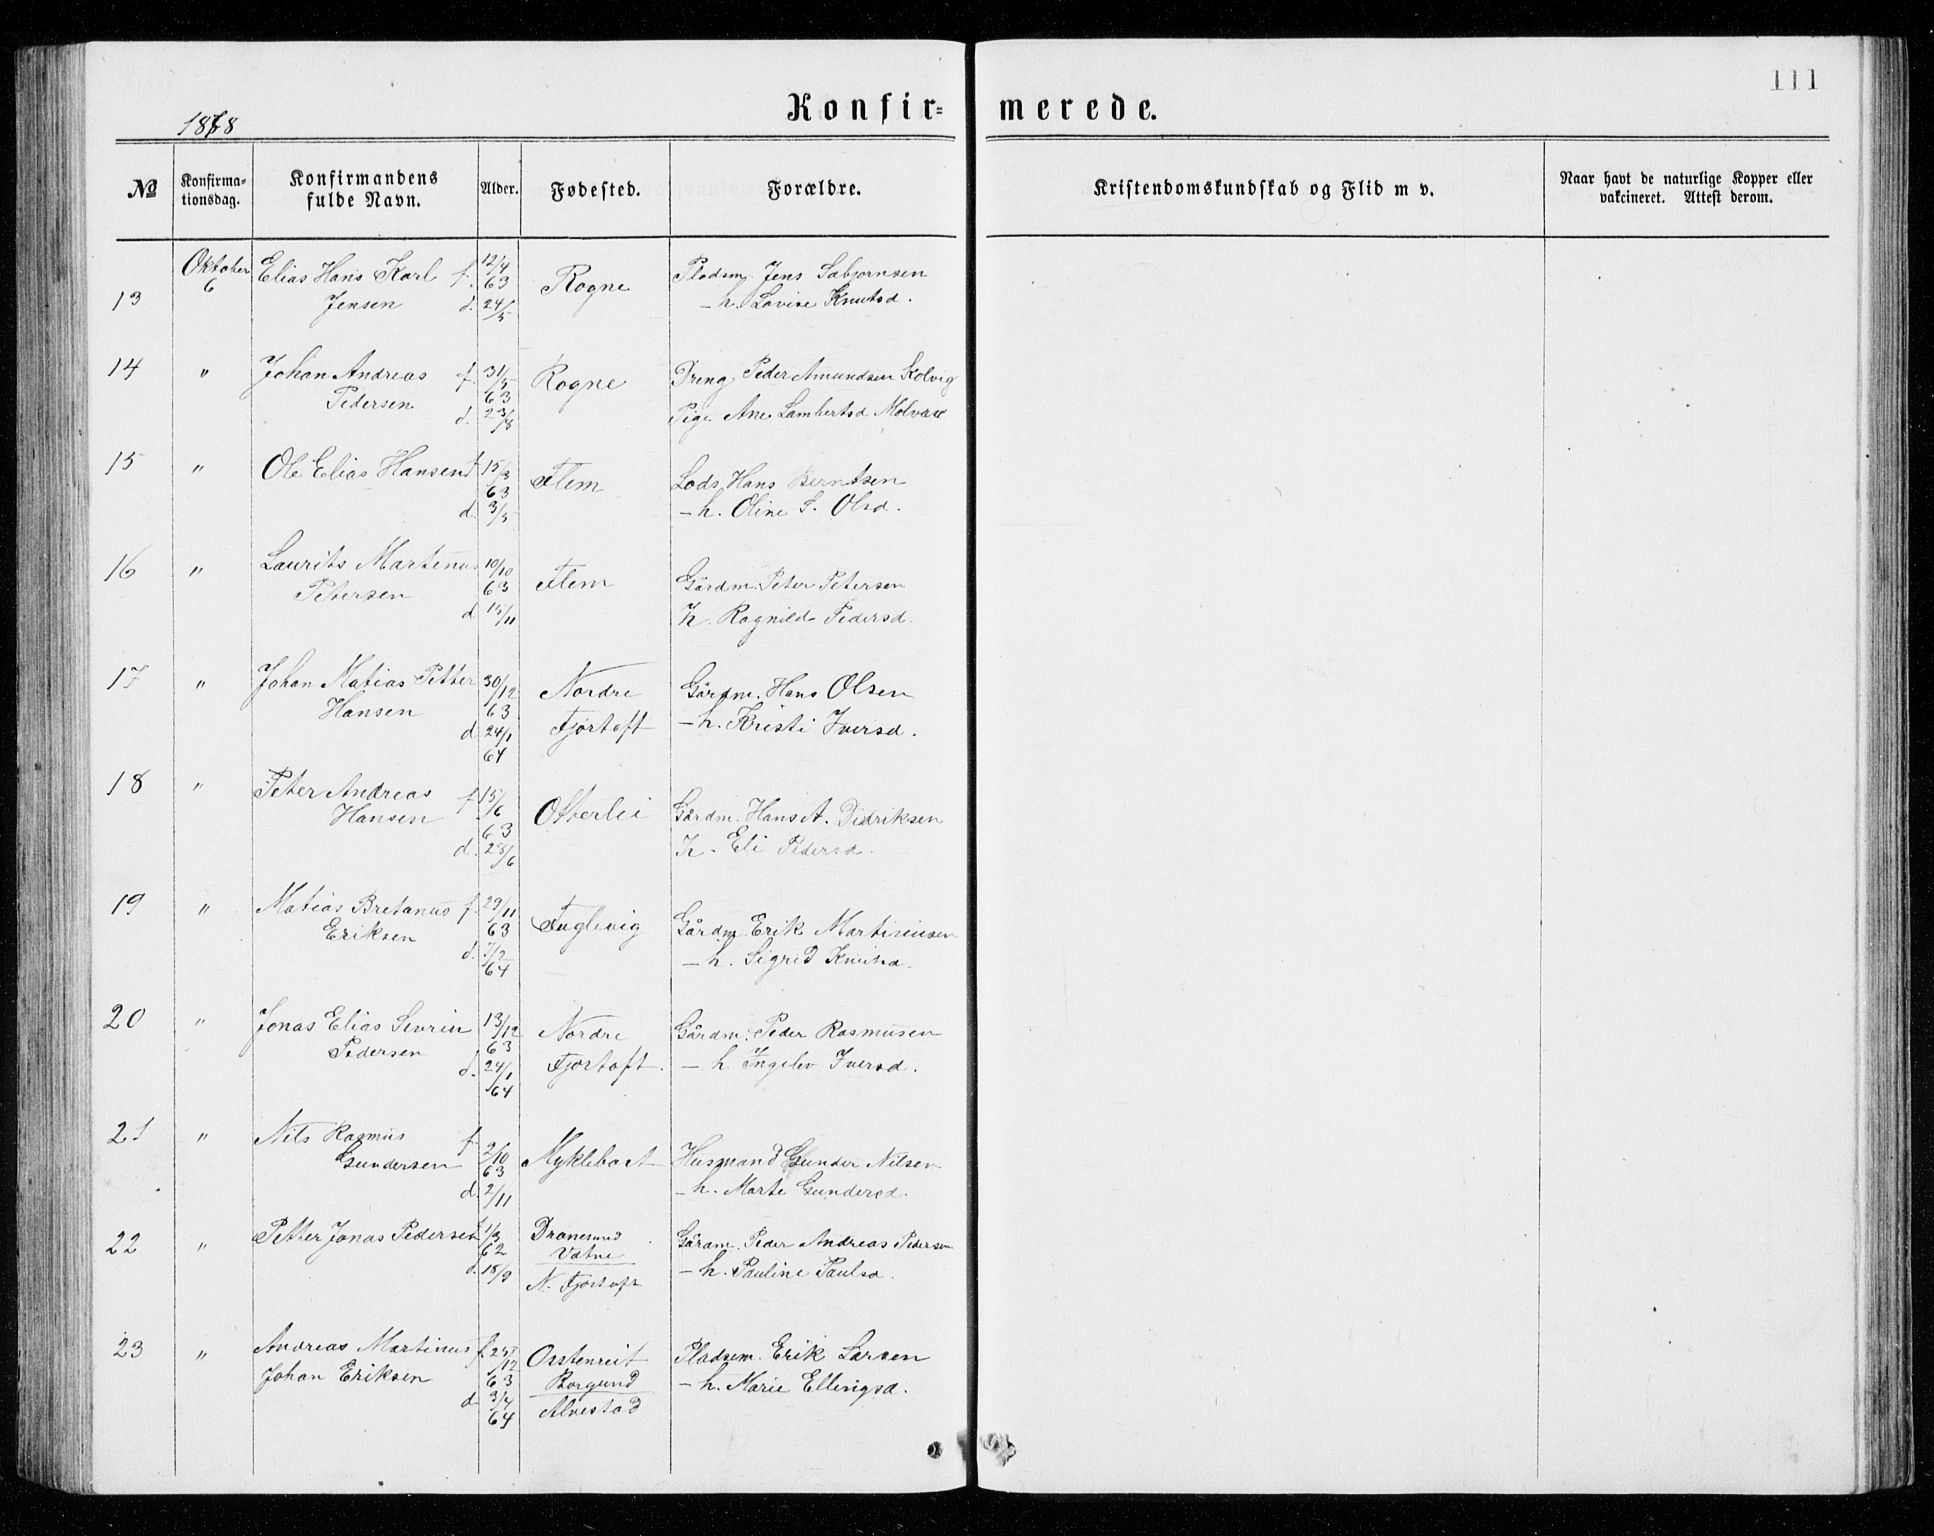 111
Konfir= merede.
1878
№ Konfirma= tionsdag. Konfirmandens fulde Navn. Alder. Fødested. Forældre. Kristendomskundskab og Flid m v. Naar havt de naturlige Kopper eller vakcineret. Attest derom.
13 Oktober 6 Elias Hans Karl f. 12/4 63 Rogne Pladsm. Jens Sabjørnsen
Jensen d. 24/5 – h. Lovise Knutsd.
14 " Johan Andreas f. 31/5 63 Rogne Dreng Peder Amundsen Kolvig
Pedersen d. 23/8 Pige Ane Lambertsd Molvær
15 " Ole Elias Hansen f 15/3 63 Flem Lods Hans Berntsen
d. 3/5 – h. Oline S. Olsd.
16 " Laurits Martinus 10/10 63 Flem Gårdm. Peter Petersen
Petersen d 15/11 h. Ragnild Pedersd.
17 " Johan Matias Petter 30/12 63 Nordre Gårdm. Hans Olsen
Hansen d 24/1 64 Fjørtoft – h. Kristi Iversd.
18 " Peter Andreas f 15/6 63 Otterlei Gårdm. Hans A. Didriksen
Hansen d. 28/6 h. Eli Pedersd.
19 " Matias Bretanus f. 29/11 63 Fuglevig Gårdm Erik Martinusen
Eriksen d. 7/2 64 – h. Sigrid Knutsd.
20 " Jonas Elias Sevrin 13/12 63 Nordre Gårdm. Peder Rasmusen
Pedersen d. 24/1 64 Fjørtoft. – h Ingelev Iversd.
21 " Nils Rasmus f
Gundersen 2/10 63 Myklebost Husmand Gunder Nilsen
d. 2/11 – h. Marte Gundersd.
22 " Petter Jonas Pedersen f 1/3 62 Dronesund Gårdm. Peder Andreas Pedersen
d. 18/9 Vatne – h. Pauline Paulsd.
N. Fjørtoft
23 " Andreas Martinus f. 25/12 63 Orstenreit Pladsem. Erik Larsen
Johan Eriksen Borgund – h. Marie Ellingsd.
d 3/4 64 Alvestad